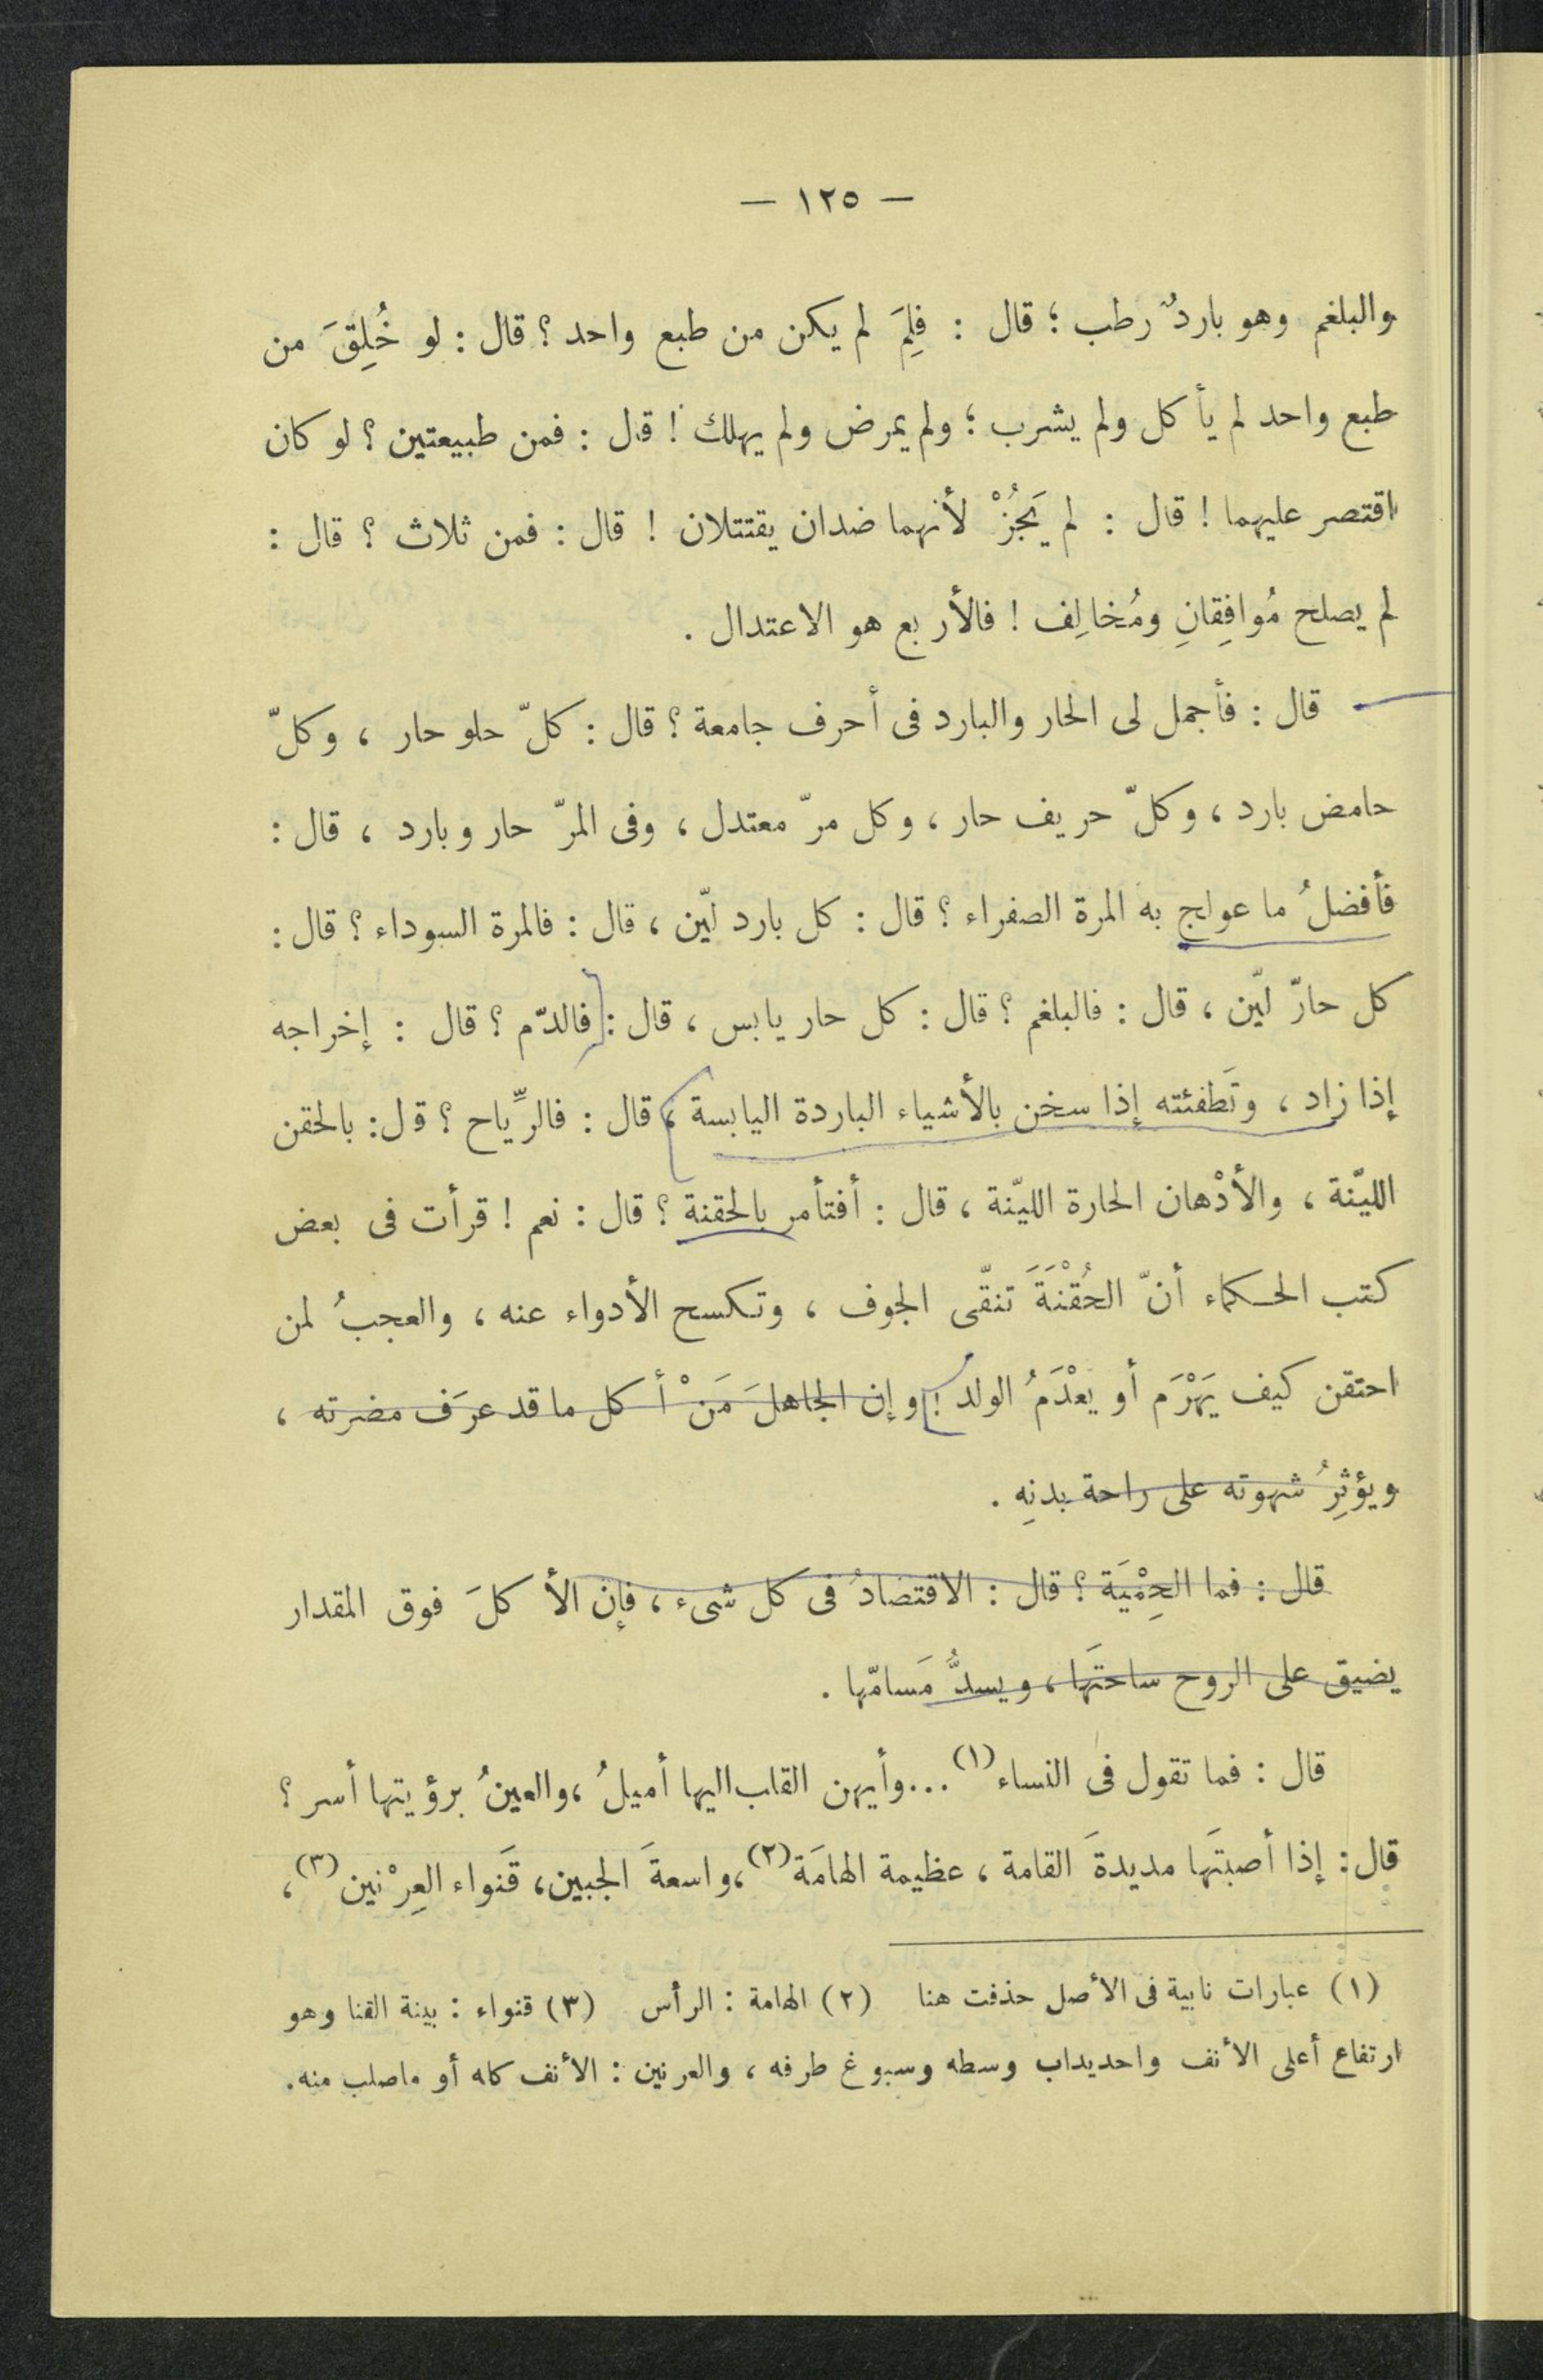 — ١٢٥ —
والبلغم وهو باردٌ رطب ؛ قال : فلِمَ لم يكن من طبع واحد ؟ قال : لو خُلِقَ من
طبع واحد لم يأكل ولم يشرب ؛ ولم يمرض ولم يهلك ! قال : فمن طبيعتين ؟ لو كان
اقتصر عليهما ! قال : لم يَجُزْ لأنهما ضدان يقتتلان ! قال : فمن ثلاث ؟ قال :
لم يصلح مُوافِقانِ ومُخالِف ! فالأربع هو الاعتدال .
قال : فأجمل لى الحار والبارد فى أحرف جامعة ؟ قال : كلّ حلو حار ، وكلّ
حامض بارد ، وكلّ حريف حار ، وكل مرّ معتدل ، وفى المرّ حار وبارد ، قال :
فأفضلُ ما عولج به المرة الصفراء ؟ قال : كل بارد ليّن ، قال : فالمرة السوداء ؟ قال :
كل حارّ ليّن ، قال : فالبلغم ؟ قال : كل حار يابس ، قال : فالدّم ؟ قال : إخراجه
إذا زاد ، وتَطفئته إذا سخن بالأشياء الباردة اليابسة ، قال : فالرِّياح ؟ قال : بالحقن
الليّنة ، والأدْهان الحارة الليّنة ، قال : أفتأمر بالحقنة ؟ قال : نعم ! قرأت فى بعض
كتب الحكماء أنّ الحُقْنَةَ تنقّى الجوف ، وتكسح الأدواء عنه ، والعجبُ لمن
احتقن كيف يَهْرَم أو يَعْدَمُ الولد ! وإن الجاهلَ مَنْ أكل ما قد عرَف مضرته ،
ويؤثِرُ شهوته على راحة بدنِه .
قال : فما الحِمْيَة ؟ قال : الاقتصادُ فى كل شىء ، فإن الأكلَ فوق المقدار
يضيق على الروح ساحتَها ، ويسدُّ مَسامّها .
قال : فما تقول فى النساء (١) ... وأيهن القلب اليها أميلُ ، والعينُ برؤيتها أسر ؟
قال : إذا أصبتَها مديدةَ القامة ، عظيمة الهامَة (٢) ، واسعةَ الجبين ، قَنواء العِرْنين (٣) ،
(١) عبارات نابية فى الأصل حذفت هنا (٢) الهامة : الرأس (٣) قنواء : بينة القنا وهو
ارتفاع أعلى الأنف واحديداب وسطه وسبوغ طرفه ، والعرنين : الأنف كله أو ماصلب منه .